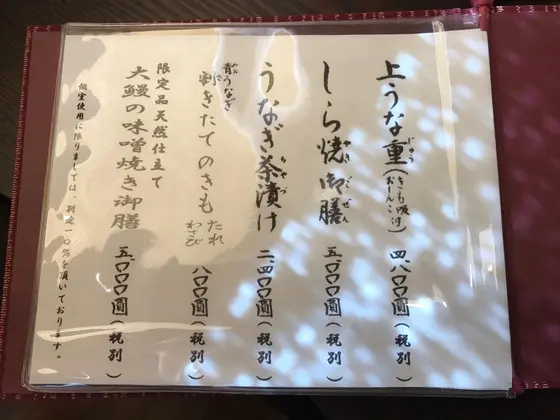 上うな重(きも吸付 おしんこ付) 四、八〇〇圓(税別)
じゅう
しら焼御膳 五、〇〇〇圓(税別)
やき ごぜん
うなぎ茶漬け 二、四〇〇圓(税別)
ちゃづ
青うなぎ
割きたてのきも たれ わさび 八〇〇圓(税別)
限定品天然仕立て
大鰻の味噌焼き御膳 五、〇〇〇圓(税別)
個室使用に限りましては、別途一〇%を頂いております。